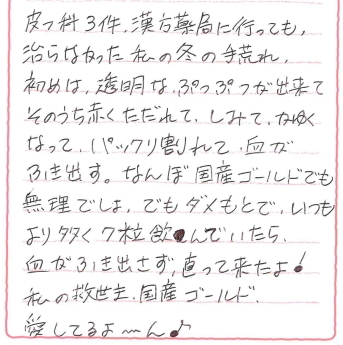 皮フ科3件、漢方薬局に行っても、
治らなかった私の冬の手荒れ。
初めは、透明な、ぷつぷつが出来て
そのうち赤くただれて、しみて、かゆく
なって、パックリ割れて、血が
ふき出す。なんぼ国産ゴールドでも
無理でしょ、でもダメもとで、いつも
より多く7粒飲んでいたら、
血がふき出さず、直って来たよ!
私の救世主、国産ゴールド、
愛してるよ〜ん♪